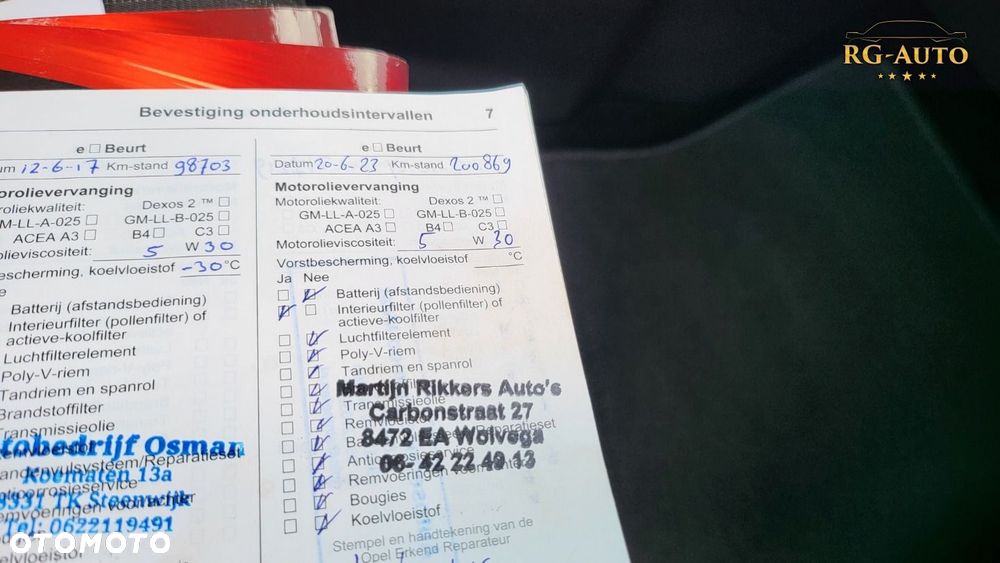 RG-AUTO
Bevestiging onderhoudsintervallen 7
e Beurt
12-6-17 Km-stand 98703
Dexos 2 ™
GM-LL-B-025
ACEA A3 B4 C3
5 W 30
koelvloeistof -30 °C
Batterij (afstandsbediening)
Interieurfilter (pollenfilter) of
actieve-koolfilter
Luchtfilterelement
Poly-V-riem
Tandriem en spanrol
Brandstoffilter
Osman
Koematen 13a
8331 TK Steenwijk
Tel: 0622119491
e Beurt
Datum 20-6-23 Km-stand 200869
Motorolievervanging
Motoroliekwaliteit: Dexos 2 ™
GM-LL-A-025 GM-LL-B-025
ACEA A3 B4 C3
Motorolieviscositeit: 5 W 30
Vorstbescherming, koelvloeistof °C
Ja Nee
Batterij (afstandsbediening)
Interieurfilter (pollenfilter) of
actieve-koolfilter
Luchtfilterelement
Poly-V-riem
Tandriem en spanrol
Transmissieolie
Remvloeistof
Remvoeringen
Bougies
Koelvloeistof
Martijn Rikkers Auto's
Carbonstraat 27
8472 EA Wolvega
06-42 22 49 13
Stempel en handtekening van de
Opel Erkend Reparateur
OTOMOTO